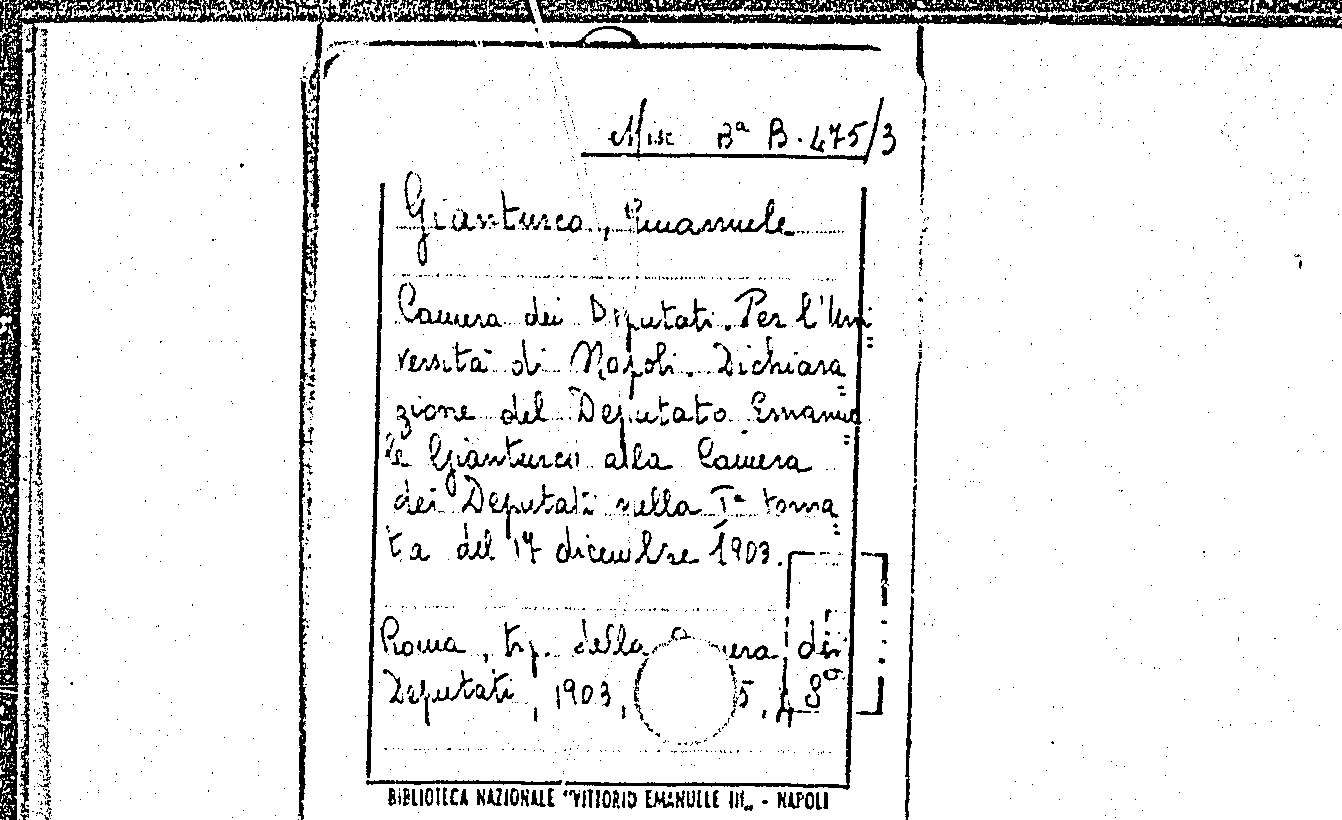 Misc Bª B.475/3
Gianturco, Emanuele
Camera dei Deputati. Per l'Uni
versità di Napoli. Dichiara
zione del Deputato Emanue
le Gianturco alla Camera
dei Deputati nella Iª torna
ta del 17 dicembre 1903.
Roma, tip. della dei
Deputati, 1903, 5. 8º
BIBLIOTECA NAZIONALE "VITTORIO EMANUELE III„ - NAPOLI